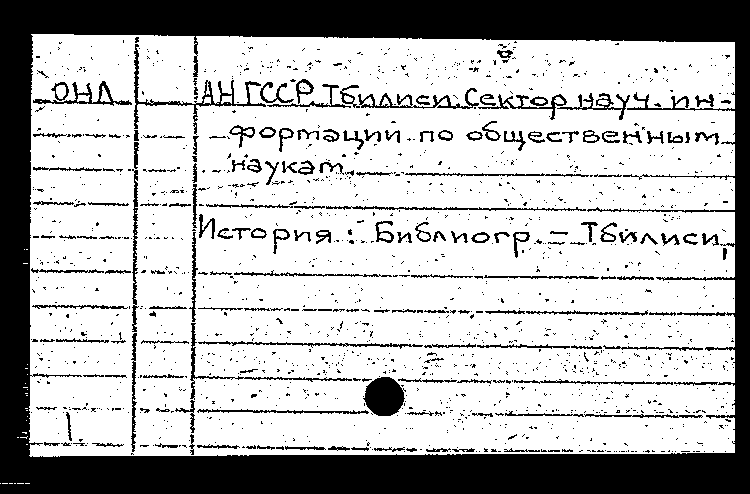 ОНЛ АН ГССР. Тбилиси. Сектор науч. ин-
формации по общественным
наукам.
История : Библиогр. – Тбилиси,